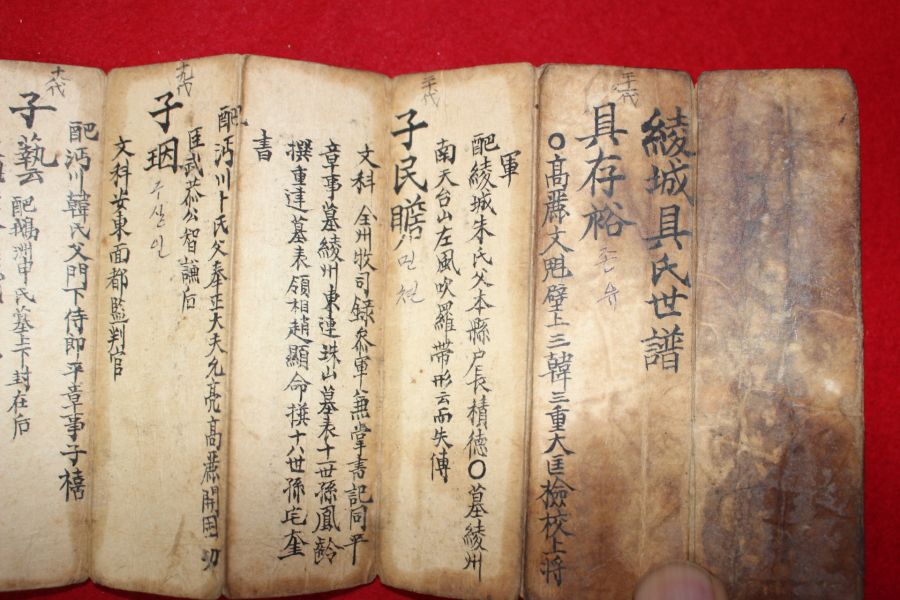 綾城具氏世譜
二十一代
具存裕
존유
○高麗文魁壁上三韓三重大匡檢校上將
軍
配綾城朱氏父本縣戶長積德○墓綾州
南天台山左風吹羅帶形云而失傳
二十代
子民瞻
민첨
文科 全州牧司錄參軍兼掌書記同平
章事墓綾州東連珠山墓表十一世孫鳳齡
撰重達墓表領相趙顯命撰十八世孫宅奎
書
配沔川卜氏父奉正大夫允亮高麗開國功
臣武恭公智謙后
十九代
子珚
文科安東面都監判官
配沔川韓氏父門下侍郎平章事子禧
十八代
子藝
配鵝洲申氏墓上下封在后